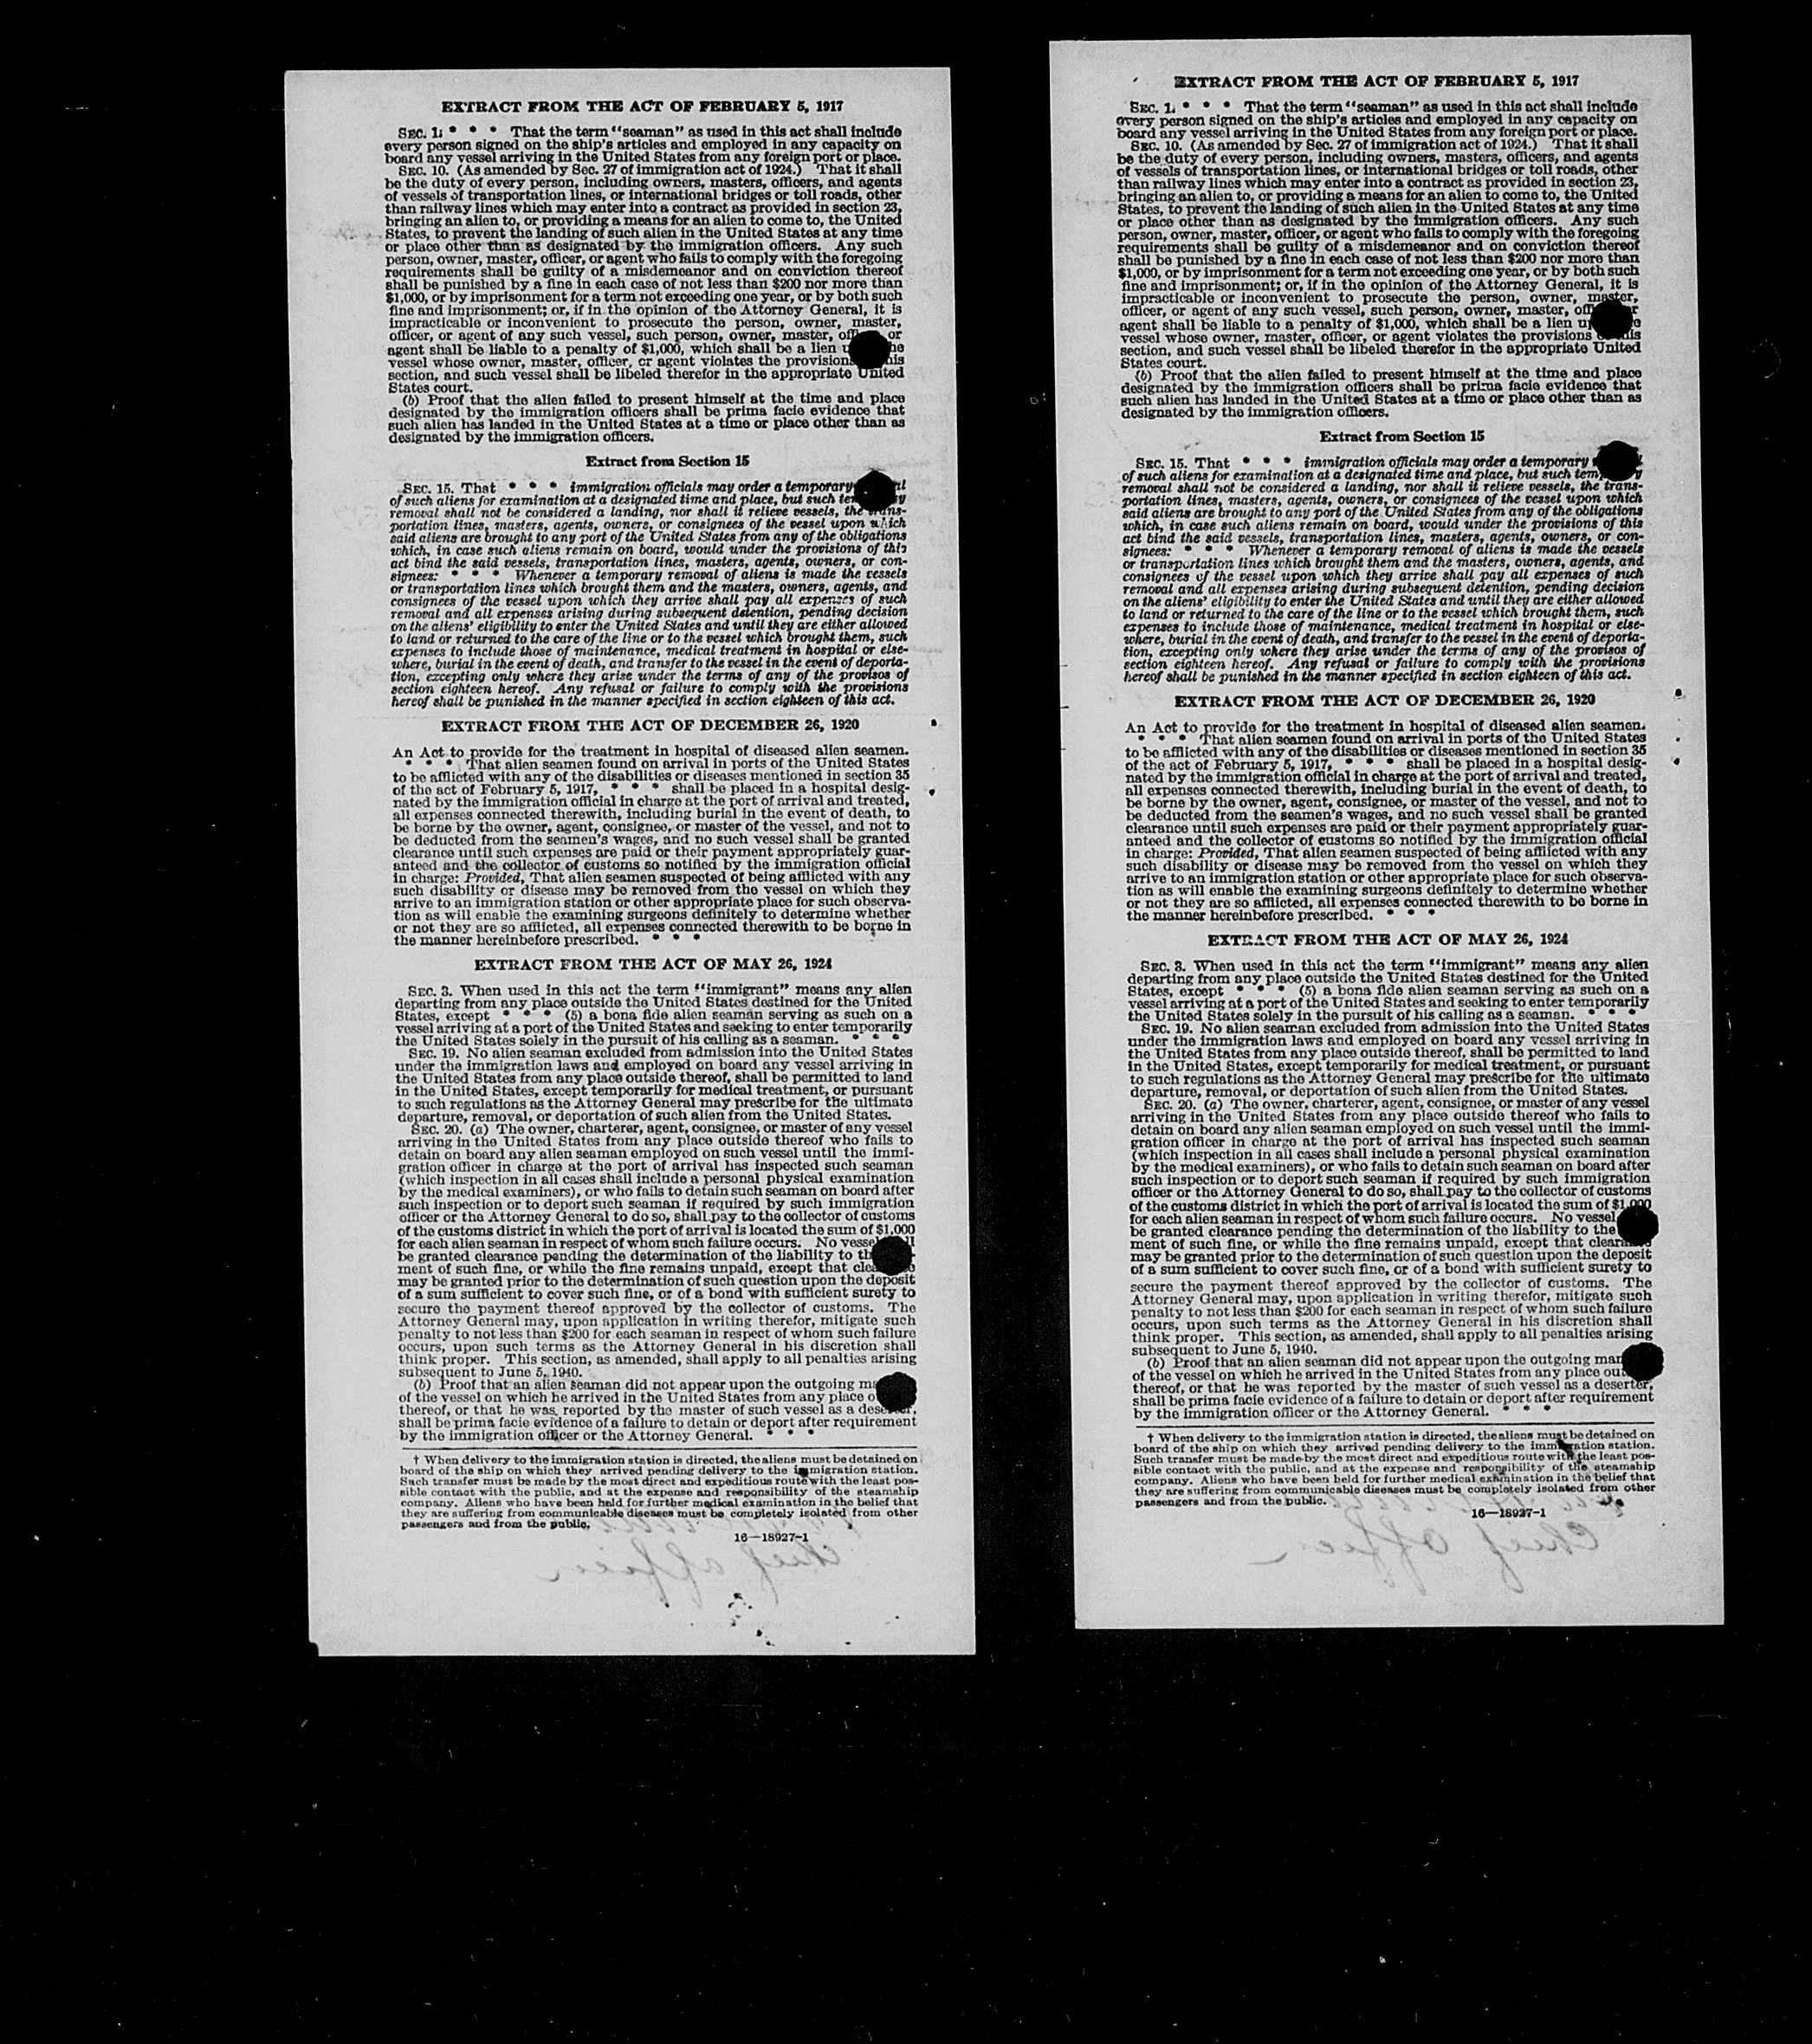 EXTRACT FROM THE ACT OF FEBRUARY 5, 1917
SEC. 1. * * * That the term "seaman" as used in this act shall include
every person signed on the ship's articles and employed in any capacity on
board any vessel arriving in the United States from any foreign port or place.
SEC. 10. (As amended by Sec. 27 of immigration act of 1924.) That it shall
be the duty of every person, including owners, masters, officers, and agents
of vessels of transportation lines, or international bridges or toll roads, other
than railway lines which may enter into a contract as provided in section 23,
bringing an alien to, or providing a means for an alien to come to, the United
States, to prevent the landing of such alien in the United States at any time
or place other than as designated by the immigration officers. Any such
person, owner, master, officer, or agent who fails to comply with the foregoing
requirements shall be guilty of a misdemeanor and on conviction thereof
shall be punished by a fine in each case of not less than $200 nor more than
$1,000, or by imprisonment for a term not exceeding one year, or by both such
fine and imprisonment; or, if in the opinion of the Attorney General, it is
impracticable or inconvenient to prosecute the person, owner, master,
officer, or agent of any such vessel, such person, owner, master, or
agent shall be liable to a penalty of $1,000, which shall be a lien
vessel whose owner, master, officer, or agent violates the provisions
section, and such vessel shall be libeled therefor in the appropriate United
States court.
(b) Proof that the alien failed to present himself at the time and place
designated by the immigration officers shall be prima facie evidence that
such alien has landed in the United States at a time or place other than as
designated by the immigration officers.
Extract from Section 15
SEC. 15. That * * * immigration officials may order a temporary
of such aliens for examination at a designated time and place, but such
removal shall not be considered a landing, nor shall it relieve vessels, the trans-
portation lines, masters, agents, owners, or consignees of the vessel upon which
said aliens are brought to any port of the United States from any of the obligations
which, in case such aliens remain on board, would under the provisions of this
act bind the said vessels, transportation lines, masters, agents, owners, or con-
signees: * * * Whenever a temporary removal of aliens is made the vessels
or transportation lines which brought them and the masters, owners, agents, and
consignees of the vessel upon which they arrive shall pay all expenses of such
removal and all expenses arising during subsequent detention, pending decision
on the aliens' eligibility to enter the United States and until they are either allowed
to land or returned to the care of the line or to the vessel which brought them, such
expenses to include those of maintenance, medical treatment in hospital or else-
where, burial in the event of death, and transfer to the vessel in the event of deporta-
tion, excepting only where they arise under the terms of any of the provisos of
section eighteen hereof. Any refusal or failure to comply with the provisions
hereof shall be punished in the manner specified in section eighteen of this act.
EXTRACT FROM THE ACT OF DECEMBER 26, 1920
An Act to provide for the treatment in hospital of diseased alien seamen.
* * * That alien seamen found on arrival in ports of the United States
to be afflicted with any of the disabilities or diseases mentioned in section 35
of the act of February 5, 1917, * * * shall be placed in a hospital desig-
nated by the immigration official in charge at the port of arrival and treated,
all expenses connected therewith, including burial in the event of death, to
be borne by the owner, agent, consignee, or master of the vessel, and not to
be deducted from the seamen's wages, and no such vessel shall be granted
clearance until such expenses are paid or their payment appropriately guar-
anteed and the collector of customs so notified by the immigration official
in charge: Provided, That alien seamen suspected of being afflicted with any
such disability or disease may be removed from the vessel on which they
arrive to an immigration station or other appropriate place for such observa-
tion as will enable the examining surgeons definitely to determine whether
or not they are so afflicted, all expenses connected therewith to be borne in
the manner hereinbefore prescribed. * * *
EXTRACT FROM THE ACT OF MAY 26, 1924
SEC. 3. When used in this act the term "immigrant" means any alien
departing from any place outside the United States destined for the United
States, except * * * (5) a bona fide alien seaman serving as such on a
vessel arriving at a port of the United States and seeking to enter temporarily
the United States solely in the pursuit of his calling as a seaman. * * *
SEC. 19. No alien seaman excluded from admission into the United States
under the immigration laws and employed on board any vessel arriving in
the United States from any place outside thereof, shall be permitted to land
in the United States, except temporarily for medical treatment, or pursuant
to such regulations as the Attorney General may prescribe for the ultimate
departure, removal, or deportation of such alien from the United States.
SEC. 20. (a) The owner, charterer, agent, consignee, or master of any vessel
arriving in the United States from any place outside thereof who fails to
detain on board any alien seaman employed on such vessel until the immi-
gration officer in charge at the port of arrival has inspected such seaman
(which inspection in all cases shall include a personal physical examination
by the medical examiners), or who fails to detain such seaman on board after
such inspection or to deport such seaman if required by such immigration
officer or the Attorney General to do so, shall pay to the collector of customs
of the customs district in which the port of arrival is located the sum of $1,000
for each alien seaman in respect of whom such failure occurs. No vessel
be granted clearance pending the determination of the liability to the
ment of such fine, or while the fine remains unpaid, except that
may be granted prior to the determination of such question upon the deposit
of a sum sufficient to cover such fine, or of a bond with sufficient surety to
secure the payment thereof approved by the collector of customs. The
Attorney General may, upon application in writing therefor, mitigate such
penalty to not less than $200 for each seaman in respect of whom such failure
occurs, upon such terms as the Attorney General in his discretion shall
think proper. This section, as amended, shall apply to all penalties arising
subsequent to June 5, 1940.
(b) Proof that an alien seaman did not appear upon the outgoing
of the vessel on which he arrived in the United States from any place
thereof, or that he was reported by the master of such vessel as a deserter,
shall be prima facie evidence of a failure to detain or deport after requirement
by the immigration officer or the Attorney General. * * *
† When delivery to the immigration station is directed, the aliens must be detained on
board of the ship on which they arrived pending delivery to the immigration station.
Such transfer must be made by the most direct and expeditious route with the least pos-
sible contact with the public, and at the expense and responsibility of the steamship
company. Aliens who have been held for further medical examination in the belief that
they are suffering from communicable diseases must be completely isolated from other
passengers and from the public.
16—18927-1
EXTRACT FROM THE ACT OF FEBRUARY 5, 1917
SEC. 1. * * * That the term "seaman" as used in this act shall include
every person signed on the ship's articles and employed in any capacity on
board any vessel arriving in the United States from any foreign port or place.
SEC. 10. (As amended by Sec. 27 of immigration act of 1924.) That it shall
be the duty of every person, including owners, masters, officers, and agents
of vessels of transportation lines, or international bridges or toll roads, other
than railway lines which may enter into a contract as provided in section 23,
bringing an alien to, or providing a means for an alien to come to, the United
States, to prevent the landing of such alien in the United States at any time
or place other than as designated by the immigration officers. Any such
person, owner, master, officer, or agent who fails to comply with the foregoing
requirements shall be guilty of a misdemeanor and on conviction thereof
shall be punished by a fine in each case of not less than $200 nor more than
$1,000, or by imprisonment for a term not exceeding one year, or by both such
fine and imprisonment; or, if in the opinion of the Attorney General, it is
impracticable or inconvenient to prosecute the person, owner, master,
officer, or agent of any such vessel, such person, owner, master,
agent shall be liable to a penalty of $1,000, which shall be a lien
vessel whose owner, master, officer, or agent violates the provisions
section, and such vessel shall be libeled therefor in the appropriate United
States court.
(b) Proof that the alien failed to present himself at the time and place
designated by the immigration officers shall be prima facie evidence that
such alien has landed in the United States at a time or place other than as
designated by the immigration officers.
Extract from Section 15
SEC. 15. That * * * immigration officials may order a temporary
of such aliens for examination at a designated time and place, but such
removal shall not be considered a landing, nor shall it relieve vessels, the trans-
portation lines, masters, agents, owners, or consignees of the vessel upon which
said aliens are brought to any port of the United States from any of the obligations
which, in case such aliens remain on board, would under the provisions of this
act bind the said vessels, transportation lines, masters, agents, owners, or con-
signees: * * * Whenever a temporary removal of aliens is made the vessels
or transportation lines which brought them and the masters, owners, agents, and
consignees of the vessel upon which they arrive shall pay all expenses of such
removal and all expenses arising during subsequent detention, pending decision
on the aliens' eligibility to enter the United States and until they are either allowed
to land or returned to the care of the line or to the vessel which brought them, such
expenses to include those of maintenance, medical treatment in hospital or else-
where, burial in the event of death, and transfer to the vessel in the event of deporta-
tion, excepting only where they arise under the terms of any of the provisos of
section eighteen hereof. Any refusal or failure to comply with the provisions
hereof shall be punished in the manner specified in section eighteen of this act.
EXTRACT FROM THE ACT OF DECEMBER 26, 1920
An Act to provide for the treatment in hospital of diseased alien seamen.
* * * That alien seamen found on arrival in ports of the United States
to be afflicted with any of the disabilities or diseases mentioned in section 35
of the act of February 5, 1917, * * * shall be placed in a hospital desig-
nated by the immigration official in charge at the port of arrival and treated,
all expenses connected therewith, including burial in the event of death, to
be borne by the owner, agent, consignee, or master of the vessel, and not to
be deducted from the seamen's wages, and no such vessel shall be granted
clearance until such expenses are paid or their payment appropriately guar-
anteed and the collector of customs so notified by the immigration official
in charge: Provided, That alien seamen suspected of being afflicted with any
such disability or disease may be removed from the vessel on which they
arrive to an immigration station or other appropriate place for such observa-
tion as will enable the examining surgeons definitely to determine whether
or not they are so afflicted, all expenses connected therewith to be borne in
the manner hereinbefore prescribed. * * *
EXTRACT FROM THE ACT OF MAY 26, 1924
SEC. 3. When used in this act the term "immigrant" means any alien
departing from any place outside the United States destined for the United
States, except * * * (5) a bona fide alien seaman serving as such on a
vessel arriving at a port of the United States and seeking to enter temporarily
the United States solely in the pursuit of his calling as a seaman. * * *
SEC. 19. No alien seaman excluded from admission into the United States
under the immigration laws and employed on board any vessel arriving in
the United States from any place outside thereof, shall be permitted to land
in the United States, except temporarily for medical treatment, or pursuant
to such regulations as the Attorney General may prescribe for the ultimate
departure, removal, or deportation of such alien from the United States.
SEC. 20. (a) The owner, charterer, agent, consignee, or master of any vessel
arriving in the United States from any place outside thereof who fails to
detain on board any alien seaman employed on such vessel until the immi-
gration officer in charge at the port of arrival has inspected such seaman
(which inspection in all cases shall include a personal physical examination
by the medical examiners), or who fails to detain such seaman on board after
such inspection or to deport such seaman if required by such immigration
officer or the Attorney General to do so, shall pay to the collector of customs
of the customs district in which the port of arrival is located the sum of $1,000
for each alien seaman in respect of whom such failure occurs. No vessel
be granted clearance pending the determination of the liability to the
ment of such fine, or while the fine remains unpaid, except that
may be granted prior to the determination of such question upon the deposit
of a sum sufficient to cover such fine, or of a bond with sufficient surety to
secure the payment thereof approved by the collector of customs. The
Attorney General may, upon application in writing therefor, mitigate such
penalty to not less than $200 for each seaman in respect of whom such failure
occurs, upon such terms as the Attorney General in his discretion shall
think proper. This section, as amended, shall apply to all penalties arising
subsequent to June 5, 1940.
(b) Proof that an alien seaman did not appear upon the outgoing
of the vessel on which he arrived in the United States from any place
thereof, or that he was reported by the master of such vessel as a deserter,
shall be prima facie evidence of a failure to detain or deport after requirement
by the immigration officer or the Attorney General. * * *
† When delivery to the immigration station is directed, the aliens must be detained on
board of the ship on which they arrived pending delivery to the immigration station.
Such transfer must be made by the most direct and expeditious route with the least pos-
sible contact with the public, and at the expense and responsibility of the steamship
company. Aliens who have been held for further medical examination in the belief that
they are suffering from communicable diseases must be completely isolated from other
passengers and from the public.
16—18927-1